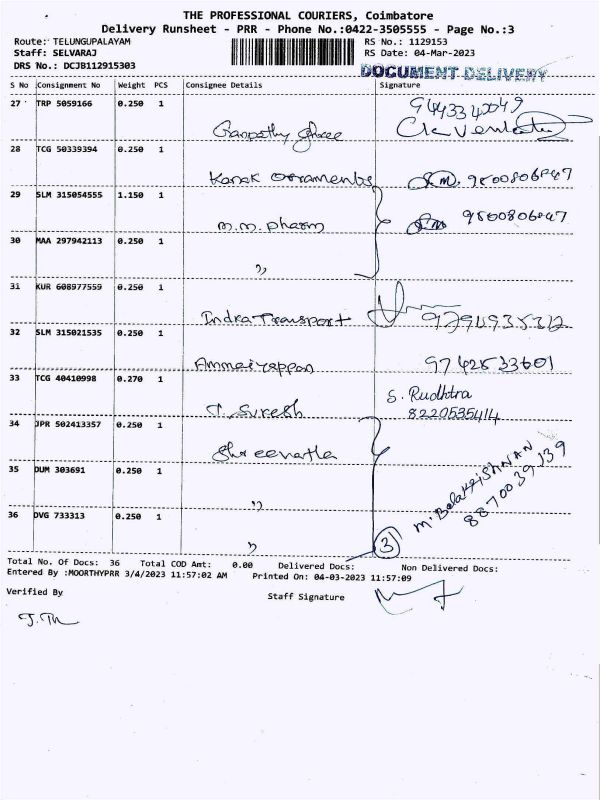 THE PROFESSIONAL COURIERS, Coimbatore
Delivery Runsheet - PRR - Phone No.:0422-3505555 - Page No.:3
Route: TELUNGUPALAYAM RS No.: 1129153
Staff: SELVARAJ RS Date: 04-Mar-2023
DRS No.: DCJB112915303
DOCUMENT DELIVERY
S No Consignment No Weight PCS Consignee Details Signature
27 TRP 5059166 0.250 1
Ganpathy
28 TCG 50339394 0.250 1
Kanak Ornaments 9500806047
29 SLM 315054555 1.150 1
m.m. pharm 9500806047
30 MAA 297942113 0.250 1
"
31 KUR 608977559 0.250 1
Indra Transport
32 SLM 315021535 0.250 1
Ammaiyappan 9742533601
33 TCG 40410998 0.270 1
T. Suresh S. Rudhtra
8220535414
34 JPR 502413357 0.250 1
Shreevatha
35 DUM 303691 0.250 1
"
M. Balakrishnan
8870039139
36 DVG 733313 0.250 1
"
3
Total No. Of Docs: 36 Total COD Amt: 0.00 Delivered Docs: Non Delivered Docs:
Entered By :MOORTHYPRR 3/4/2023 11:57:02 AM Printed On: 04-03-2023 11:57:09
Verified By Staff Signature